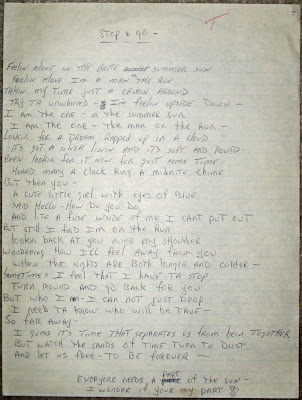 T
Stop & go.
Feelin alone in the brite summer sun
Feelin alone I'm a man on the run
Takin my time just a cruisin around
Try ta unwined - I'm feelin upside down -
I am the one - in the summer sun
I am the one - the man on the run -
Lookin for a dream wrapped up in a cloud
Its got a silver linin and its soft and round -
Been lookin for it now for quit some time
Heard many a clock ring a midnite chime
But then you -
A cute little girl with eyes of blue
Said Hello - How do you do
And lite a fuse inside of me I cant put out
But still I find I'm on the run
lookin back at you over my shoulder
Wondering how I'll feel away from you
When the nights are both longer and colder -
Sometimes I feel that I have ta stop
Turn round and go back for you
But who I am - I can not just drop
I need ta know who will be true -
So far away -
I guess it's time that separates us from bein together
But watch the sands of time turn to dust
And let us free - to be forever -
Everyone needs a part of the sun -
I wonder if your my part